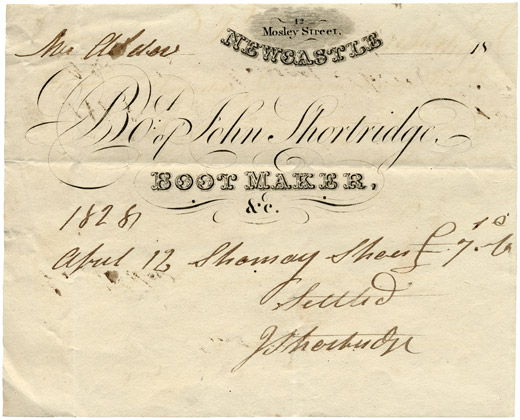 12
Mosley Street.
NEWCASTLE
Mr 18
Bot. of John Shortridge.
BOOT MAKER,
&c.
1828
April 12 Shamay Shoes £ 7 6
Settled
J Shortridge